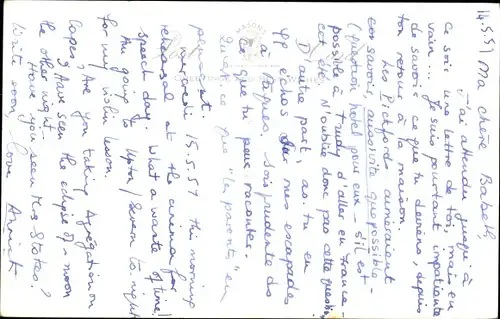 14.5.51 Ma chère Babeth,
J'ai attendu jusqu'à
ce soir une lettre de toi, mais en
vain... Je suis pourtant impatiente
de savoir ce que tu deviens, depuis
ton retour à la maison.
Les Pickford aimeraient
savoir, aussi vite que possible
(question hôtel pour eux - s'il est
possible à Trudy d'aller en France
cet été. N'oublie donc pas cette question
D'autre part, as-tu eu
qq échos de mes escapades
à Paris, sois prudente de
ce que tu peux raconter.
que "les parents" en
15.5.51 this morning
rehearsal at the cinema for
speech day. What a waste of time!
Am going to Upton / Severn to night
for my violin lesson.
Are you taking Agrégation on
I have seen the eclipse of moon
the other night.
Have you seen Mrs Stokes?
Write soon, love Annick